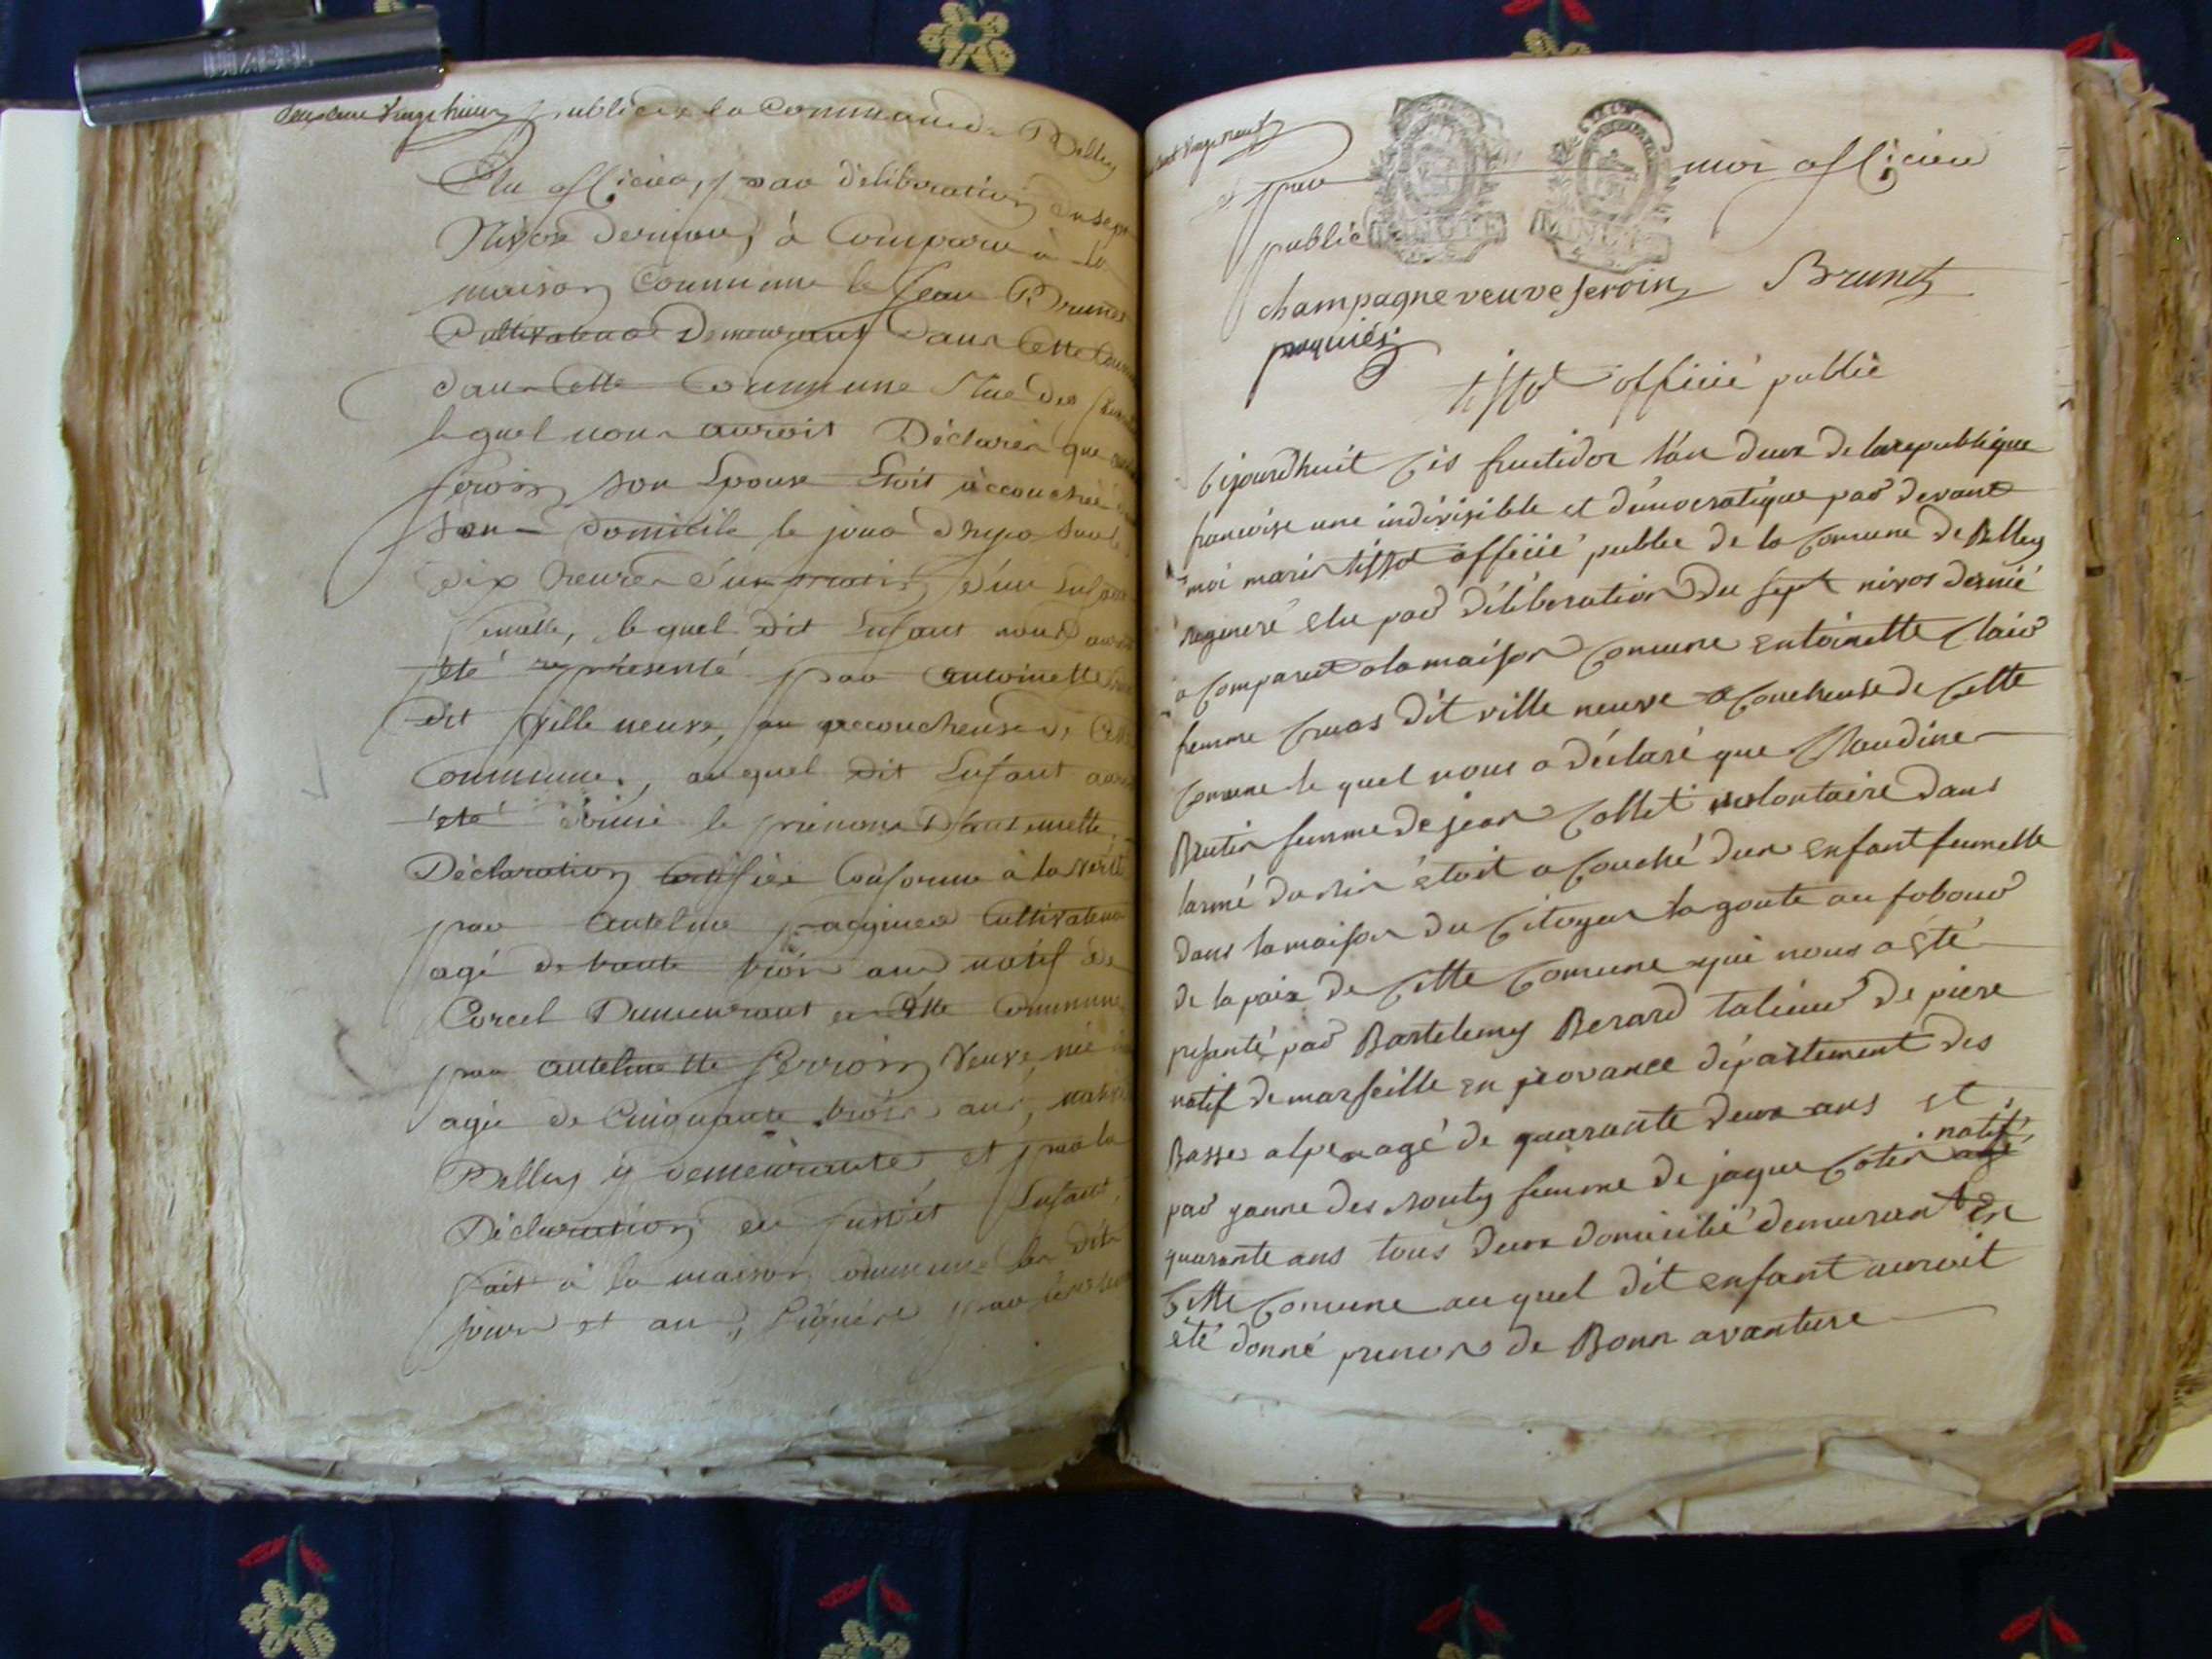 deux cent vingt huit
publicq de la Commune de Belley
Elu officier, par déliberation du sept
Nivose dernier, à Comparu à la
maison Commune le Jean Brunet
Cultivateur Demeurant Dans Cette
dans Cette Commune Rue des
lequel nous auroit Déclaré que
ferroin son Epouse Etoit accouchée
son domicile le jour d'hyer sur
dix heures du matin, d'un Enfant
femelle, lequel dit Enfant nous auroit
été représenté par antoinette
dit ville neuve, accoucheuse de Cette
Commune, auquel dit Enfant auroit
été donné le prénom D'antelmette
Déclaration Certifiée Conforme à la vérité
par antelme paquiés Cultivateur
agé de trente trois ans natif de
Corcel Demeurant en Cette Commune
par antelmette ferroin Veuve,
agée de Cinquante trois ans, native
Belley y demeurante, et par la
Déclaration du susdit Enfant,
fait à la maison commune les dits
jours et an, Signéré par
deux cent vingt neuf
et par moi officier
public
MINUTE MINUTE
champagne veuve feroin Brunet
paquiés
tissot officié publié
Cejourdhuit sis fruitidor l'an deux de la republique
francoise une indivisible et démocratique par devant
moi marin tissot officié publie de la Comune de Belley
regeneré elu par déliberation Du sept nivos dernié
a Comparut a la maison Comune entoinette Clair
femme Cruas dit ville neuve a Coucheuse de Cette
Comune le quel nous a déclaré que Claudine
Brutin femme de jean Collet volontaire dans
larmé du rin étoit a Couché dun enfant feumelle
dans la maison du Citoyen lagoute au fobour
de la paix de Cette Comune qui nous a été
presanté par Bartelemy Berard talieur de piere
natif de marseille en provance département des
Basse alpe agé de quarante deux ans et
par janne des routy femme de jaque Cotin natif
agé
quarante ans tous deux domicilié demurant En
Cette Comune au quel dit enfant auroit
été donné prenom de Bonn avanture